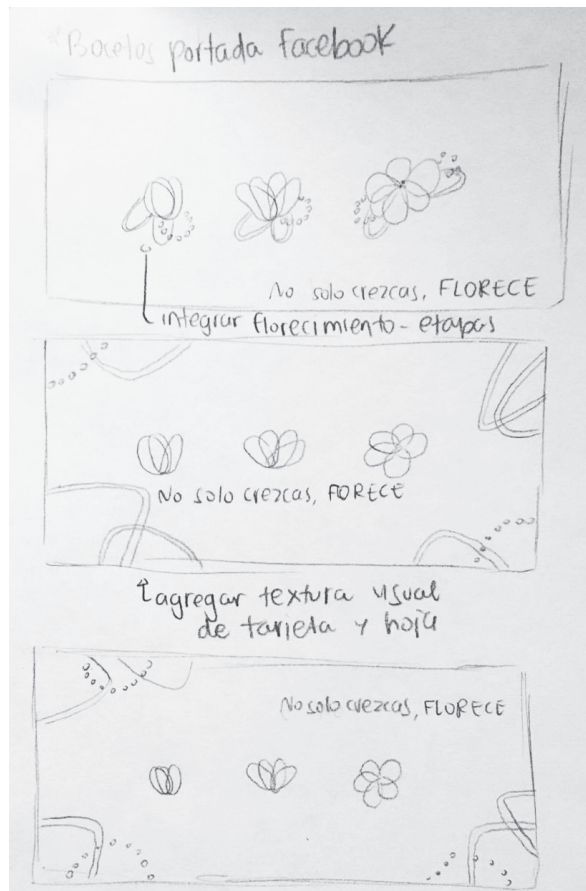 Bocetos portada facebook
No solo crezcas, FLORECE
integrar florecimiento - etapas
No solo crezcas, FORECE
agregar textura visual
de tarjeta y hoja
No solo crezcas, FLORECE